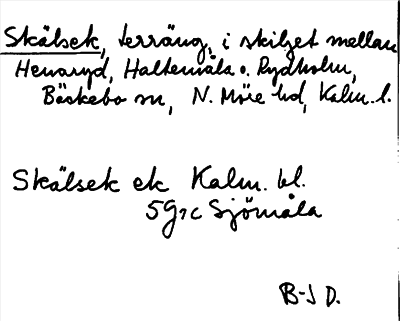 Skälsek, terräng, i skiljet mellan
Henaryd, Haltemåla o. Rydholm,
Bäckebo sn, N. Möre hd, Kalm. l.
Skälsek ek Kalm. bl.
5G7c Sjömåla
B-J D.